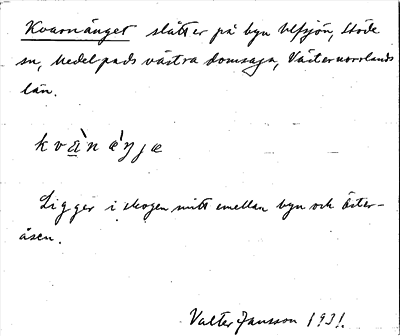 Kvarnänget slåtter på byn Ulfsjön, Stöde
sn, Medelpads västra domsaga, Västernorrlands
län.
kvà̱n æ̀ŋjæ
Ligger i skogen mitt emellan byn och Öster-
åsen.
Valter Jansson 1931.